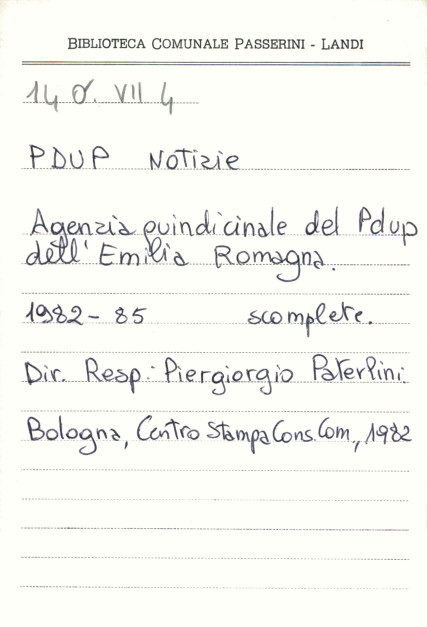 BIBLIOTECA COMUNALE PASSERINI - LANDI
14 O. VII 4
PDUP Notizie
Agenzia quindicinale del Pdup
dell'Emilia Romagna.
1982- 85 scomplete.
Dir. Resp.: Piergiorgio Paterlini
Bologna, Centro Stampa Cons. Com., 1982